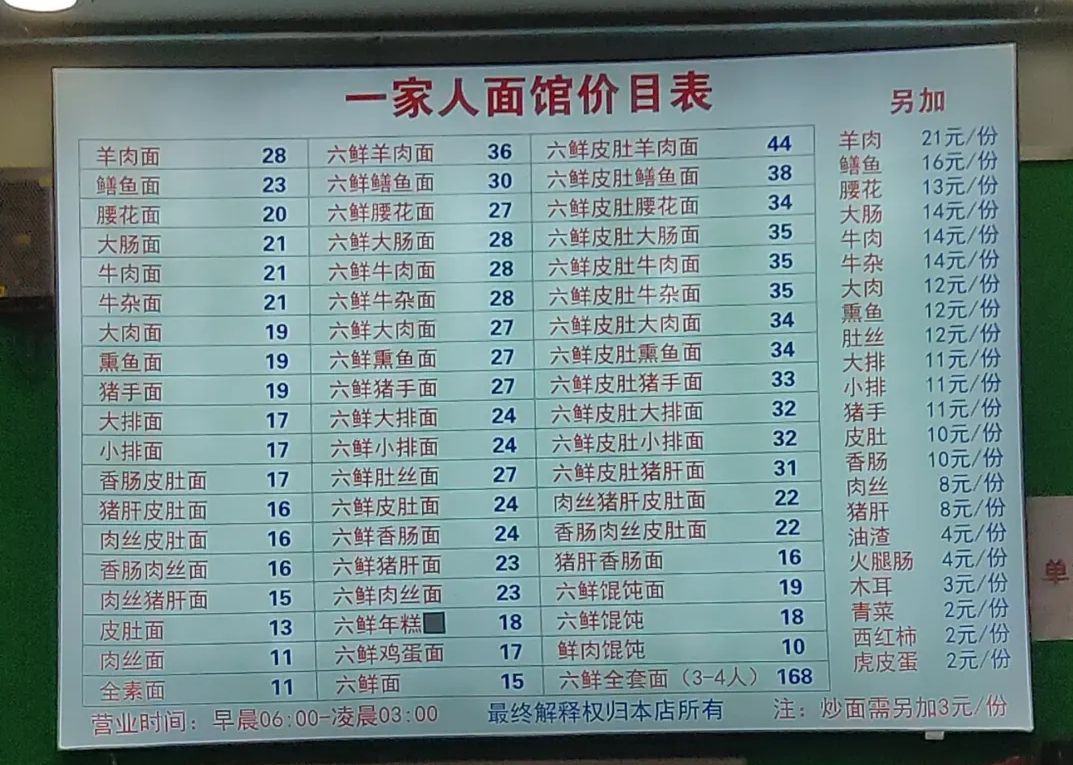 一家人面馆价目表
羊肉面 28 六鲜羊肉面 36 六鲜皮肚羊肉面 44
鳝鱼面 23 六鲜鳝鱼面 30 六鲜皮肚鳝鱼面 38
腰花面 20 六鲜腰花面 27 六鲜皮肚腰花面 34
大肠面 21 六鲜大肠面 28 六鲜皮肚大肠面 35
牛肉面 21 六鲜牛肉面 28 六鲜皮肚牛肉面 35
牛杂面 21 六鲜牛杂面 28 六鲜皮肚牛杂面 35
大肉面 19 六鲜大肉面 27 六鲜皮肚大肉面 34
熏鱼面 19 六鲜熏鱼面 27 六鲜皮肚熏鱼面 34
猪手面 19 六鲜猪手面 27 六鲜皮肚猪手面 33
大排面 17 六鲜大排面 24 六鲜皮肚大排面 32
小排面 17 六鲜小排面 24 六鲜皮肚小排面 32
香肠皮肚面 17 六鲜肚丝面 27 六鲜皮肚猪肝面 31
猪肝皮肚面 16 六鲜皮肚面 24 肉丝猪肝皮肚面 22
肉丝皮肚面 16 六鲜香肠面 24 香肠肉丝皮肚面 22
香肠肉丝面 16 六鲜猪肝面 23 猪肝香肠面 16
肉丝猪肝面 15 六鲜肉丝面 23 六鲜馄饨面 19
皮肚面 13 六鲜年糕 18 六鲜馄饨 18
肉丝面 11 六鲜鸡蛋面 17 鲜肉馄饨 10
全素面 11 六鲜面 15 六鲜全套面（3-4人） 168
另加
羊肉 21元/份
鳝鱼 16元/份
腰花 13元/份
大肠 14元/份
牛肉 14元/份
牛杂 14元/份
大肉 12元/份
熏鱼 12元/份
肚丝 12元/份
大排 11元/份
小排 11元/份
猪手 11元/份
皮肚 10元/份
香肠 10元/份
肉丝 8元/份
猪肝 8元/份
油渣 4元/份
火腿肠 4元/份
木耳 3元/份
青菜 2元/份
西红柿 2元/份
虎皮蛋 2元/份
营业时间：早晨06:00-凌晨03:00 最终解释权归本店所有 注：炒面需另加3元/份
单